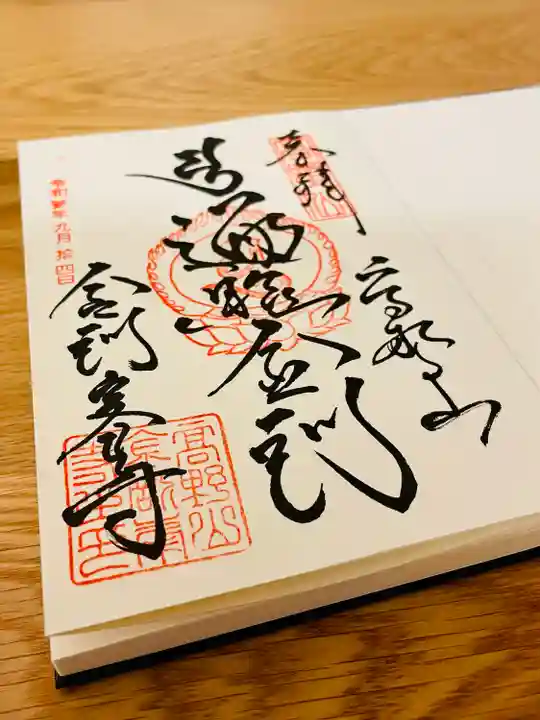 奉拝
高野山
遍照金剛
金剛峯寺
令和 年九月拾四日
高野山
金剛峯
寺之印